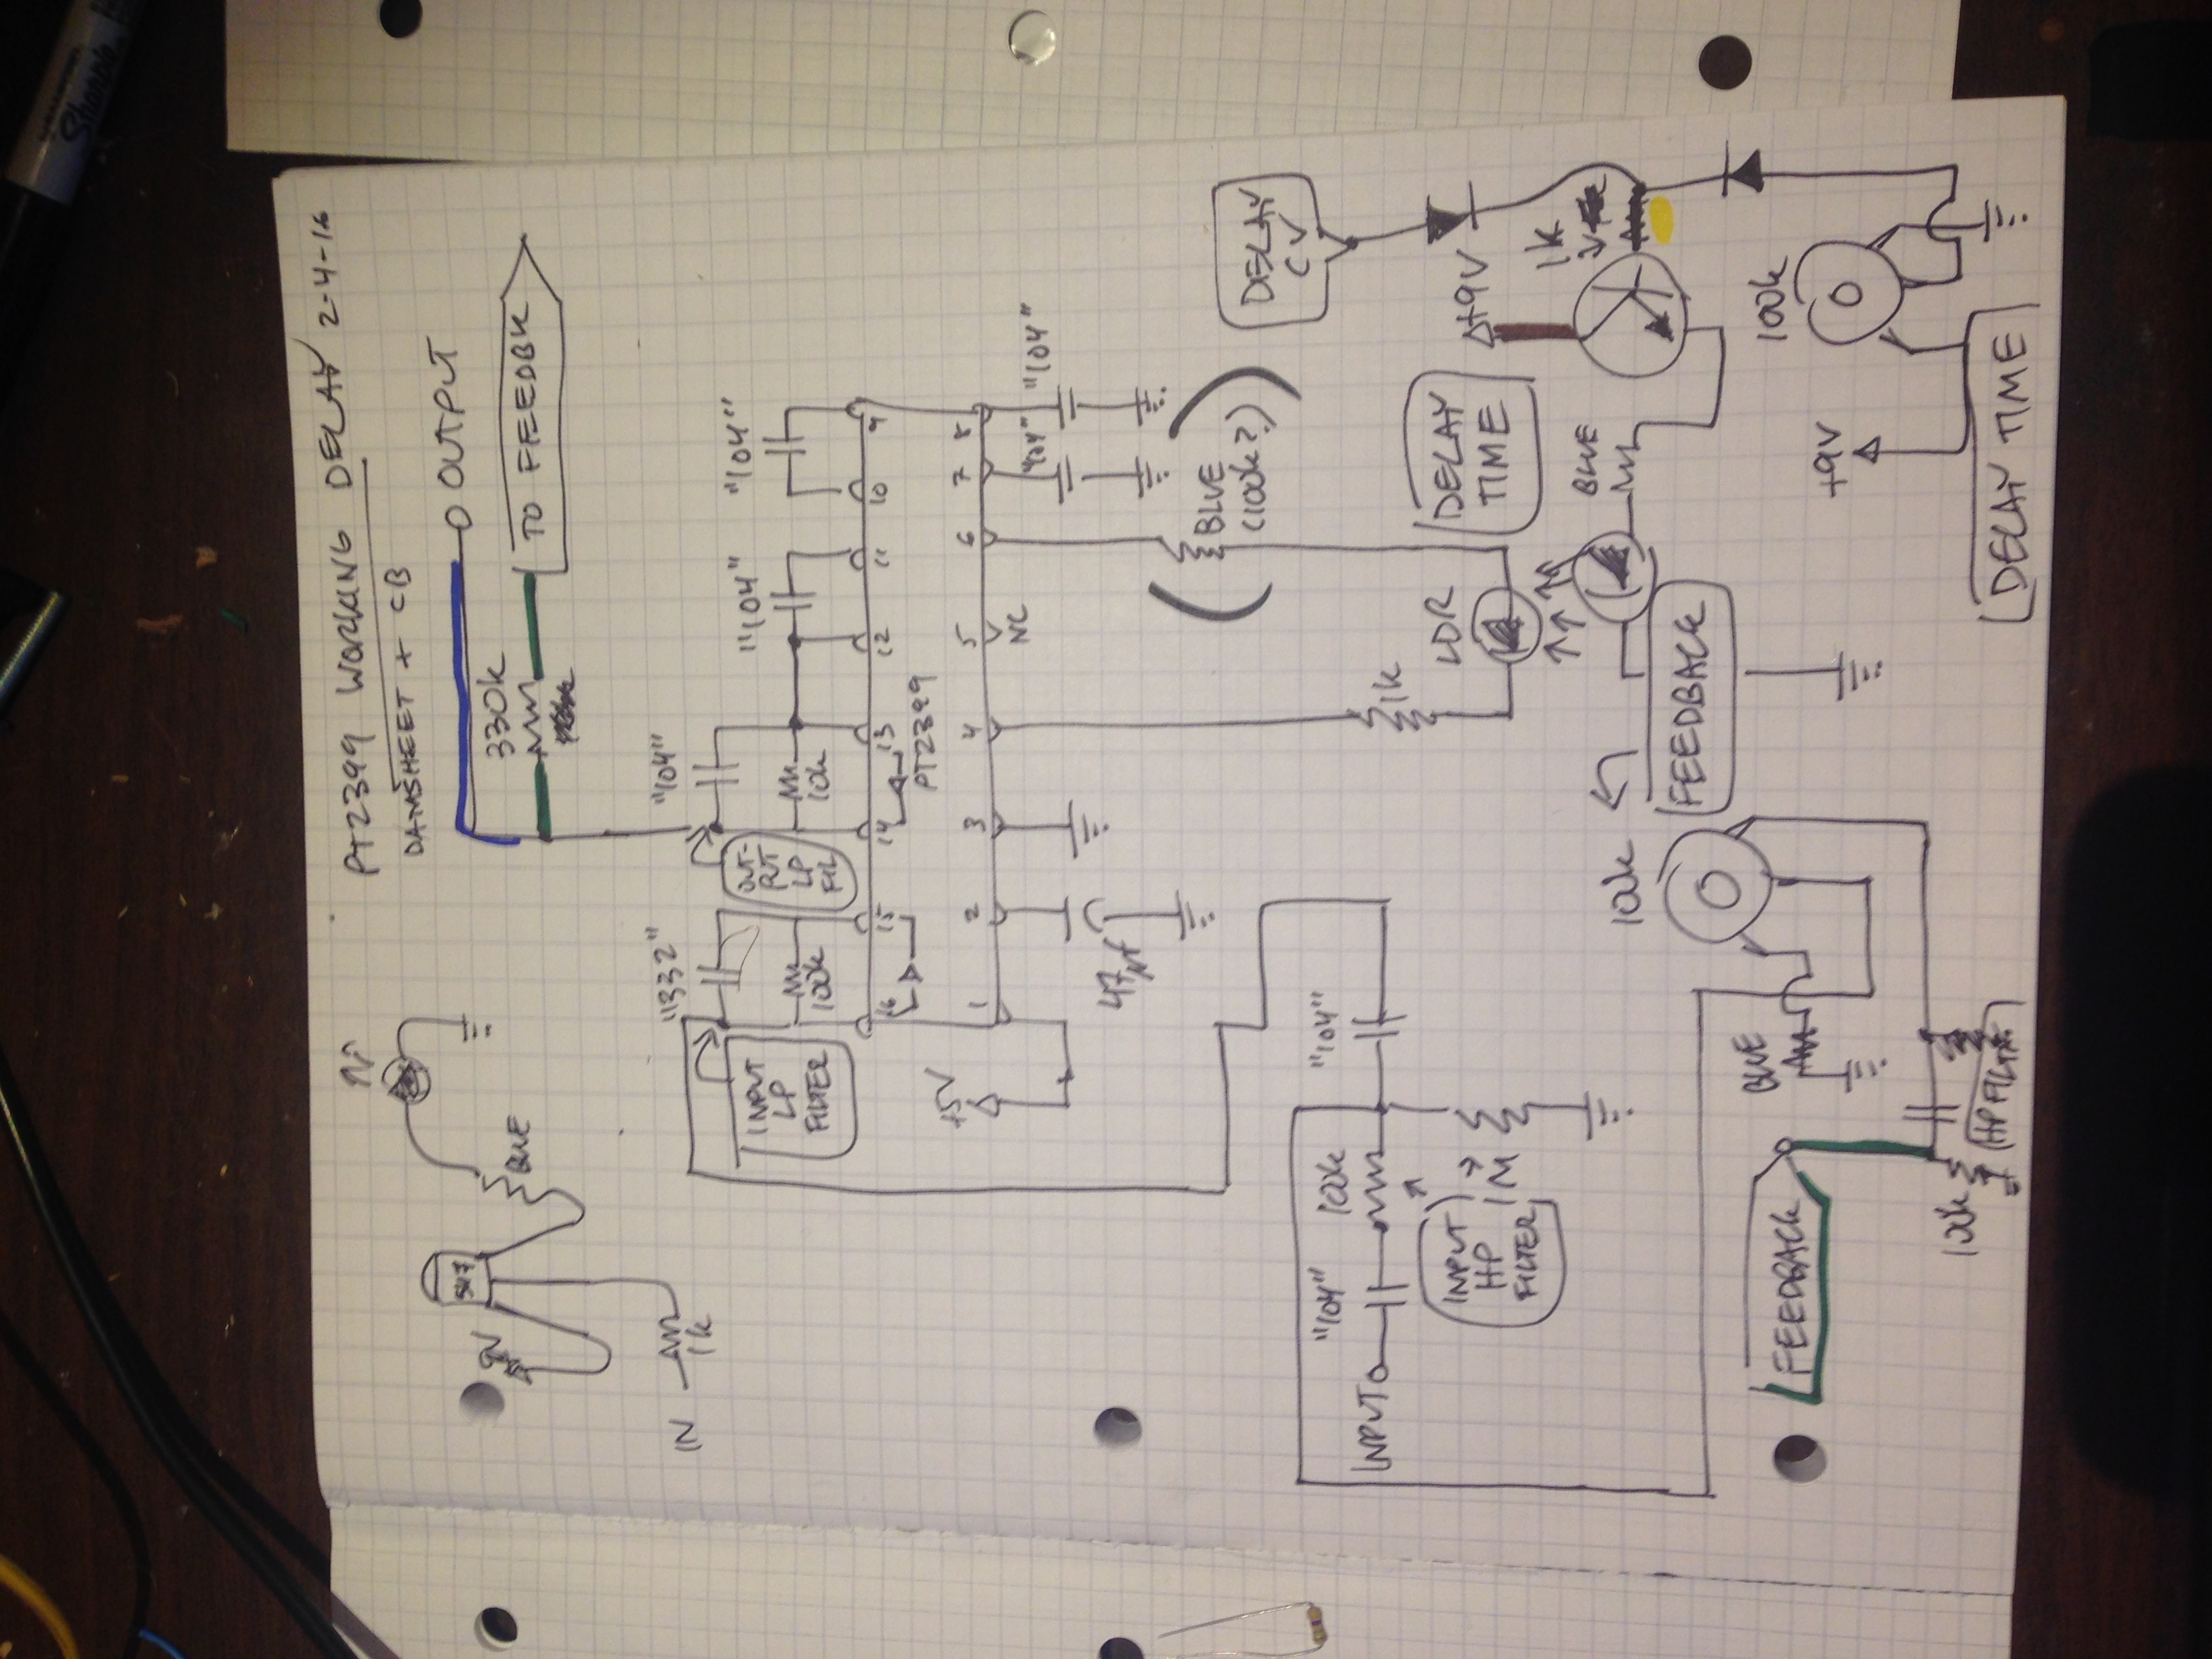 Sharpie
PT2399 WORKING DELAY 2-4-16
DATASHEET + CB
OUTPUT
330k
TO FEEDBK
547
BLUE
IN
1k
"332"
"104"
INPUT
LP
FILTER
100k
OUT-
PUT
LP
FIL
10k
"104"
"104"
16 15 14 13 12 11 10 9
PT2399
+5V
1 2 3 4 5 6 7 8
NC
"104"
"104"
47
BLUE
(100k?)
DELAY
CV
"104"
100k
"104"
INPUT
INPUT
HP
FILTER
1M
1k
LDR
DELAY
TIME
+9V
1K
BLUE
100k
FEEDBACK
BLUE
FEEDBACK
100k
+9V
100k
HP FILTER
DELAY TIME